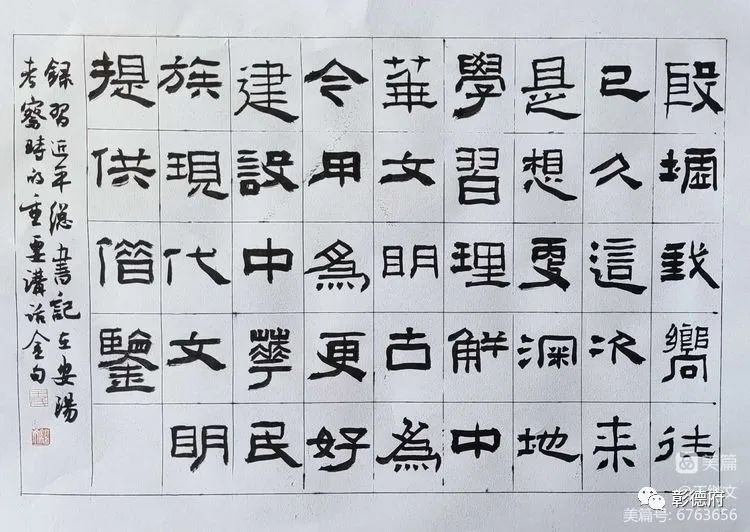 殷墟我嚮往
已久這次來
是想更深地
學習理解中
華文明古為
今用為更好
建設中華民
族現代文明
提供借鑒
録習近平總書記在安陽
考察時的重要講话金句
美篇
彰德府
美篇号: 6763656